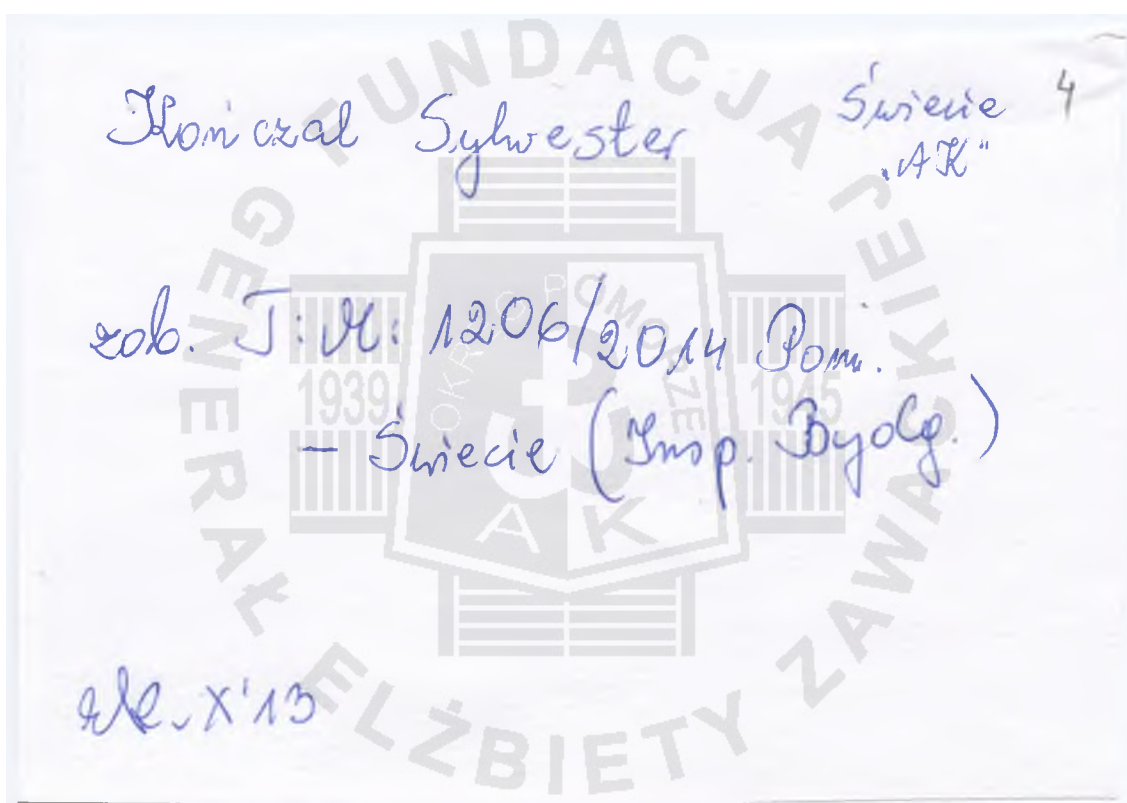 Kończal Sylwester
Świecie 4
„AK"
zob. T: M: 1206/2014 Pom.
– Świecie (Insp. Bydg.)
X'13
FUNDACJA GENERAŁ ELŻBIETY ZAWACKIEJ
OKRĘG POMORZE
1939 1945
AK